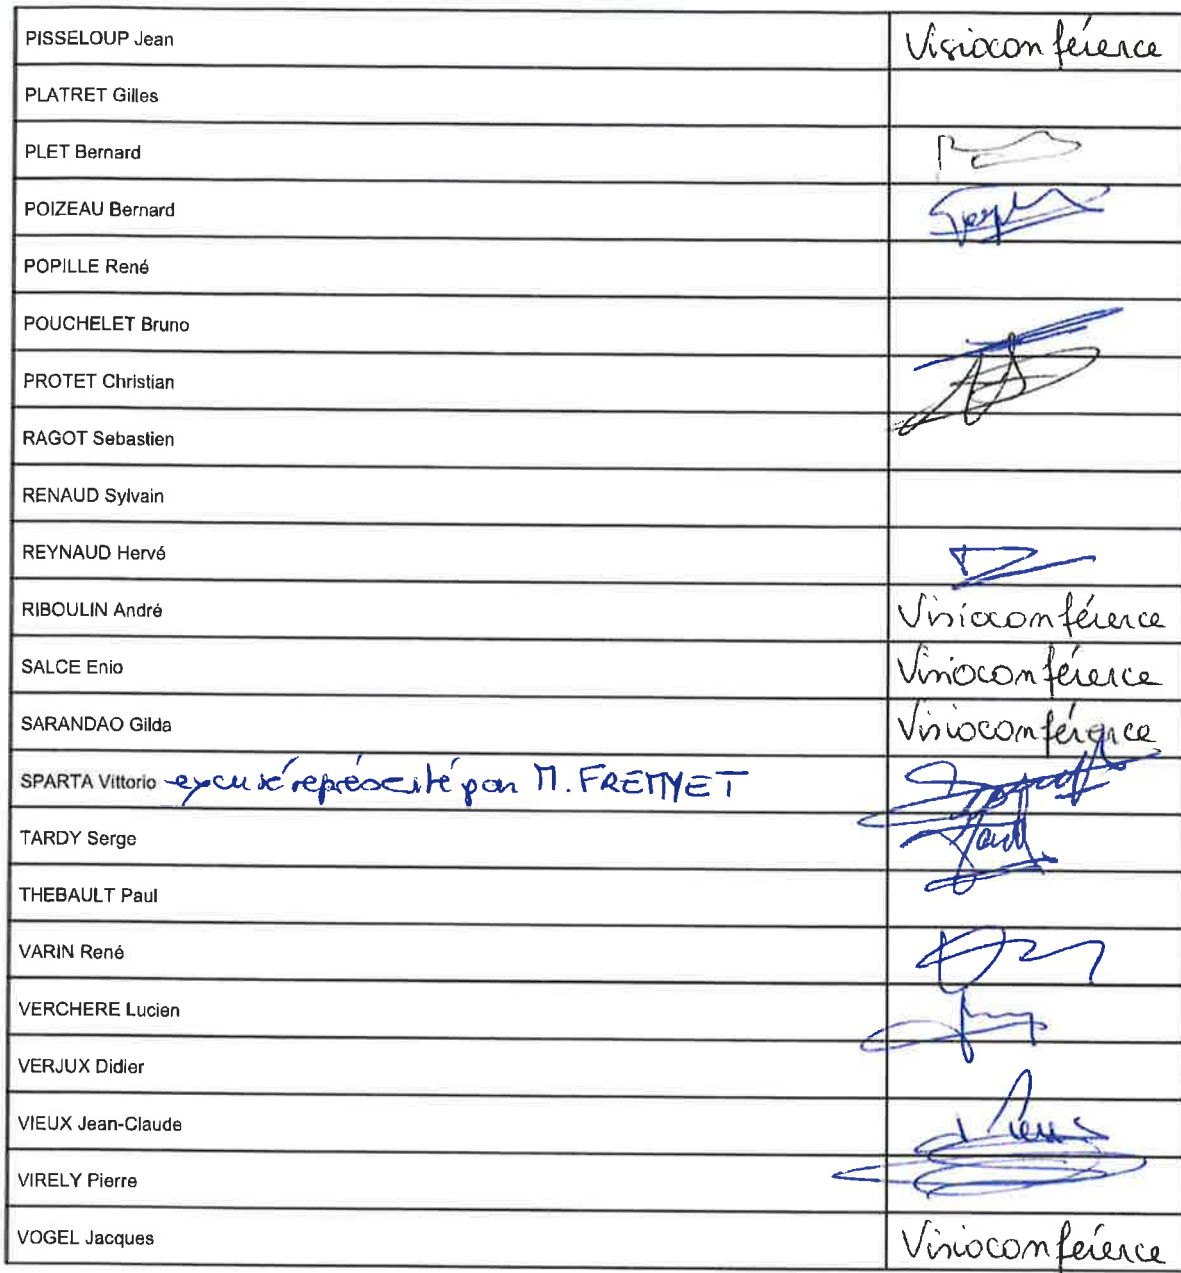 PISSELOUP Jean Visioconférence
PLATRET Gilles
PLET Bernard
POIZEAU Bernard
POPILLE René
POUCHELET Bruno
PROTET Christian
RAGOT Sebastien
RENAUD Sylvain
REYNAUD Hervé
RIBOULIN André Visioconférence
SALCE Enio Visioconférence
SARANDAO Gilda Visioconférence
SPARTA Vittorio excusé représenté par M. FREMYET
TARDY Serge
THEBAULT Paul
VARIN René
VERCHERE Lucien
VERJUX Didier
VIEUX Jean-Claude
VIRELY Pierre
VOGEL Jacques Visioconférence